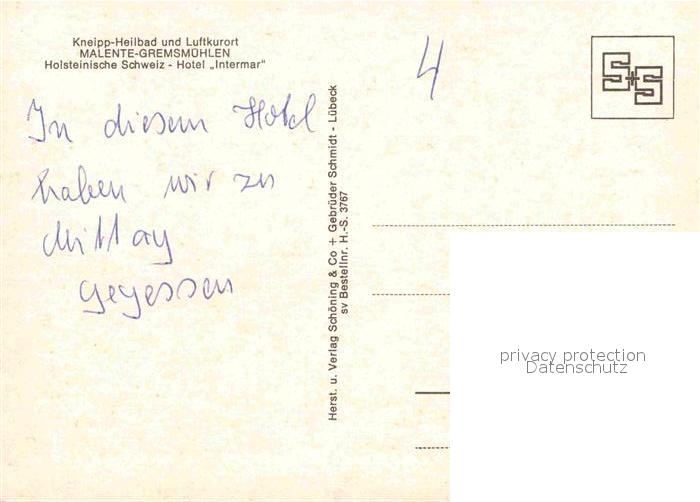 Kneipp-Heilbad und Luftkurort
MALENTE-GREMSMÜHLEN
Holsteinische Schweiz - Hotel „Intermar"
In diesem Hotel
haben wir zu
Mittag
gegessen
Herst. u. Verlag Schöning & Co + Gebrüder Schmidt - Lübeck
sv Bestellnr. H.-S. 3767
4
S+S
privacy protection
Datenschutz